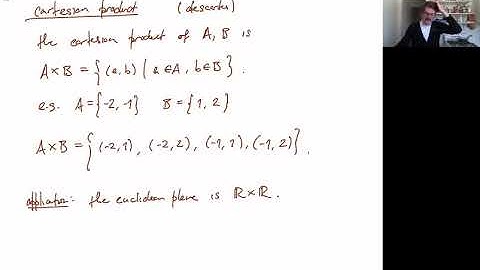 cartesian product (descartes)
the cartesian product of A, B is
A×B = { (a,b) | a ∈ A, b ∈ B } .
e.g. A = {-2, -1} B = {1, 2}
A×B = { (-2,1), (-2,2), (-1,1), (-1,2) } .
application: the euclidean plane is ℝ×ℝ .